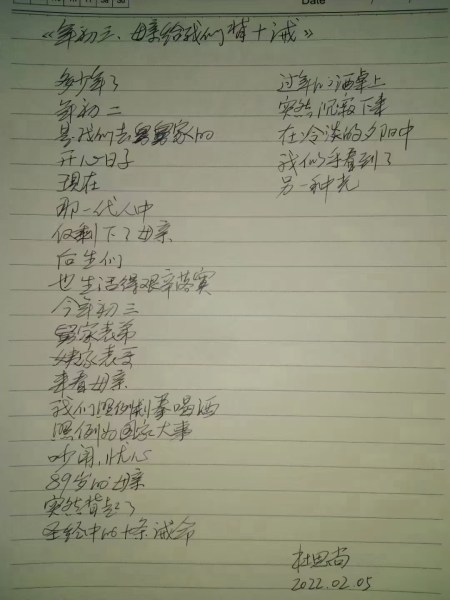 Date
《年初三，母亲给我们背十诫》
多少年了
年初二
是我们去舅舅家的
开心日子
现在
那一代人中
仅剩下了母亲
后生们
也生活得艰辛落实
今年初三
舅家表弟
姨家表哥
来看母亲
我们照例划拳喝酒
照例为国家大事
吵闹，忧心
89岁的母亲
突然背起了
圣经中的十条诫命
过年的酒桌上
突然沉寂下来
在冷淡的夕阳中
我似乎看到了
另一种光
杜思尚
2022.02.05